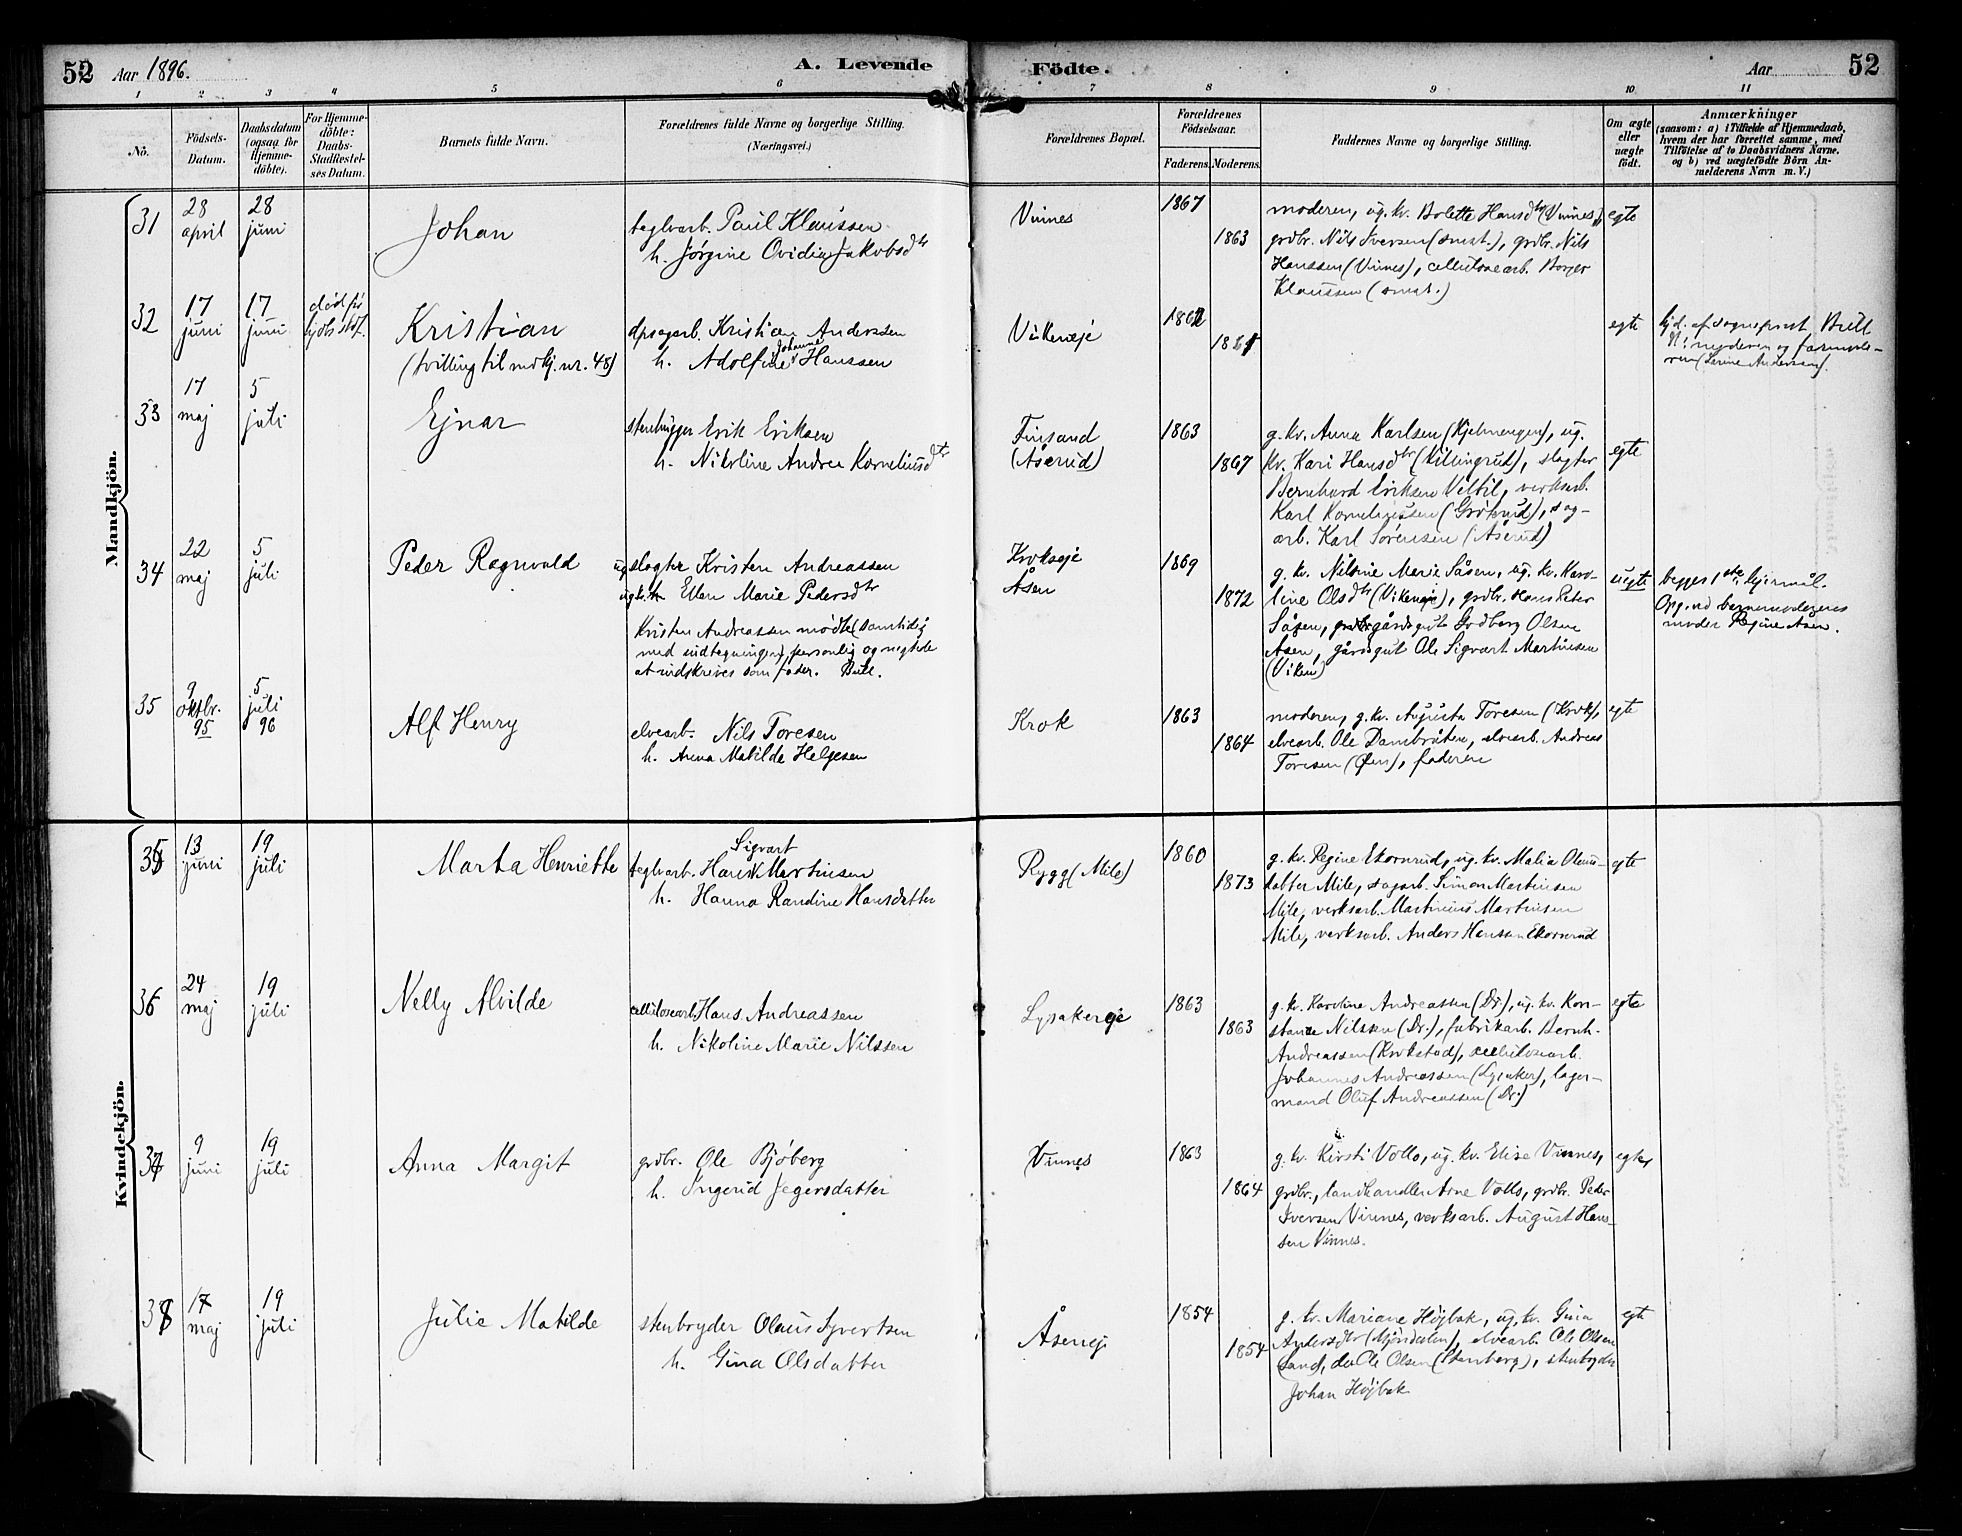 52 Aar 1896. A. Levende Födte. Aar 52
1 2 3 4 5 6 7 8 9 10 11
No.
Födsels-
Datum.
Daabsdatum
(ogsaa for
Hjemme-
döbte).
For Hjemme-
döbte:
Daabs-
Stadfæstel-
ses Datum.
Barnets fulde Navn.
Forældrenes fulde Navne og borgerlige Stilling.
(Næringsvei.)
Forældrenes Bopæl.
Forældrenes
Födselsaar.
Faderens. Moderens.
Faddernes Navne og borgerlige Stilling.
Om ægte
eller
uægte
födt.
Anmærkninger
(saasom: a) i Tilfælde af Hjemmedaab,
hvem der har forrettet samme, med
Tilföielse af to Daabsvidners Navne.
og b) ved uægtefödte Börn An-
melderens Navn m. V.)
Mandkjön.
31
28
april
28
juni
Johan
teglvarb. Paul Klaussen
h. Jørgine Ovidia Jakobsdtr
Vinnes
1867
1863
moderen, ug. kv. Bolette Hansdtr (Vinnes),
grdbr. Nils Iversen (smst.), grdbr. Nils
Hanssen (Vinnes), cellulosearb. Borger
Klaussen (smst.)
egte
32
17
juni
17
juni
død før
Kristian
(tvilling til mdkj. nr. 48)
dpsagarb. Kristian Anderssen
h. Adolfine Johanne Hanssen
Vikeneje
1862
1861
egte
hjd. af sogneprest Bull
V: moderen og farmode-
ren (Lerine Anderssen).
33
17
maj
5
juli
Ejnar
stenhugger Erik Eriksen
h. Nikoline Andrea Korneliusdtr
Finsand
(Åserud)
1863
1867
g. kv. Anna Karlsen (Hjelmengen), ug.
kv. Kari Hansdtr (Killingrud), slagter
Bernhard Eriksen Veltil, verksarb.
Karl Korneliussen, sag-
arb. Karl Sørensen (Åserud)
egte
34
22
maj
5
juli
Peder Ragnvald
ug slagter Kristen Andreassen
ug. kv. Ellen Marie Pedersdtr
Kristen Andreassen mødte (samtidig
med indtegningen) personlig og negtede
at indskrives som fader. Bull.
Krokseje
Åsen
1869
1872
g. kv. Nilsine Marie Såsen, ug. kv. Karo-
line Olsdtr (Vikeneje), grdbr. Hans Peter
Såsen, gårdsgut Godberg Olsen
Åsen, gårdsgut Ole Sigvart Martinsen
(Viken)
uegte
begges 1ste lejermål.
Opg. ved barnemoderens
moder Regine Åsen.
35
9
oktbr.
95
5
juli
96
Alf Henry
elvearb. Nils Toresen
h. Anna Matilde Helgesen
Krok
1863
1864
moderen, g. kv. Augusta Toresen (Krok),
elvearb. Ole Dambråten, elvearb. Andreas
Toresen (Øen), faderen
egte
Kvindekjön.
35
13
juni
19
juli
Marta Henriette
teglvarb. Hans Sigvart Martinsen
h. Hanna Randine Hansdatter
Rygg (Mile)
1860
1873
g. kv. Regine Ekornrud, ug. kv. Malia Olaus-
datter Mile, sagarb. Simon Martinsen
Mile, verksarb. Martinius Martinsen
Mile, verksarb. Anders Hanssen Ekornrud
egte
36
24
maj
19
juli
Nelly Alvilde
cellulosearb. Hans Andreassen
h. Nikoline Marie Nilssen
Lysakereje
1863
1863
g. kv. Karoline Andreassen (Dr.), ug. kv. Kon-
stanze Nilssen (Dr.), fabrikarb. Bernh.
Andreassen (Krokstad), cellulosearb.
Johannes Andreassen (Lysaker), lager-
mand Oluf Andreassen (Dr.)
egte
37
9
juni
19
juli
Anna Margit
grdbr. Ole Bjøberg
h. Ingerid Jegersdatter
Vinnes
1863
1864
g. kv. Kirsti Vollo, ug. kv. Elise Vinnes,
grdbr., landhandler Arne Vollo, grdbr. Peder
Iversen Vinnes, verksarb. August Hans-
sen Vinnes.
egte
38
17
maj
19
juli
Julie Matilde
stenbryder Olaus Syvertsen
h. Gina Olsdatter
Åseneje
1854
1854
g. kv. Mariane Højbak, ug. kv. Gina
Andersdtr (Mjøndalen), elvearb. Ole Olsen
Sand, do Ole Olsen (Stenberg), stenbryder
Johan Højbak
egte